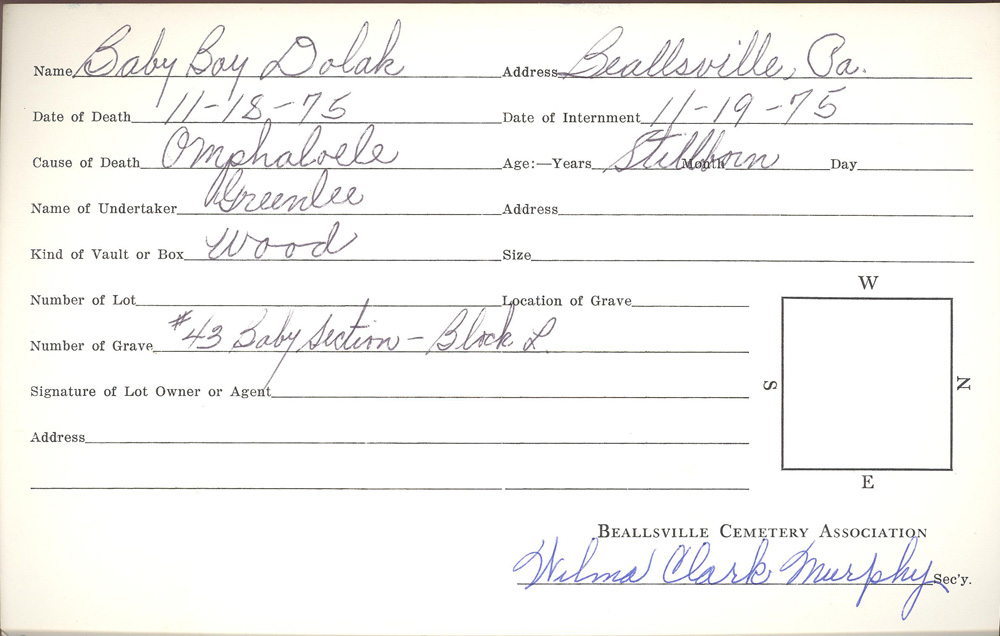 Name Baby Boy Dolak Address Beallsville, Pa.
Date of Death 11-18-75 Date of Internment 11-19-75
Cause of Death Omphalocele Age:—Years Stillborn Month Day
Name of Undertaker Greenlee Address
Kind of Vault or Box Wood Size
Number of Lot Location of Grave
W
Number of Grave #43 Baby Section - Block L
S N
Signature of Lot Owner or Agent
Address
E
Beallsville Cemetery Association
Wilma Clark Murphy Sec'y.